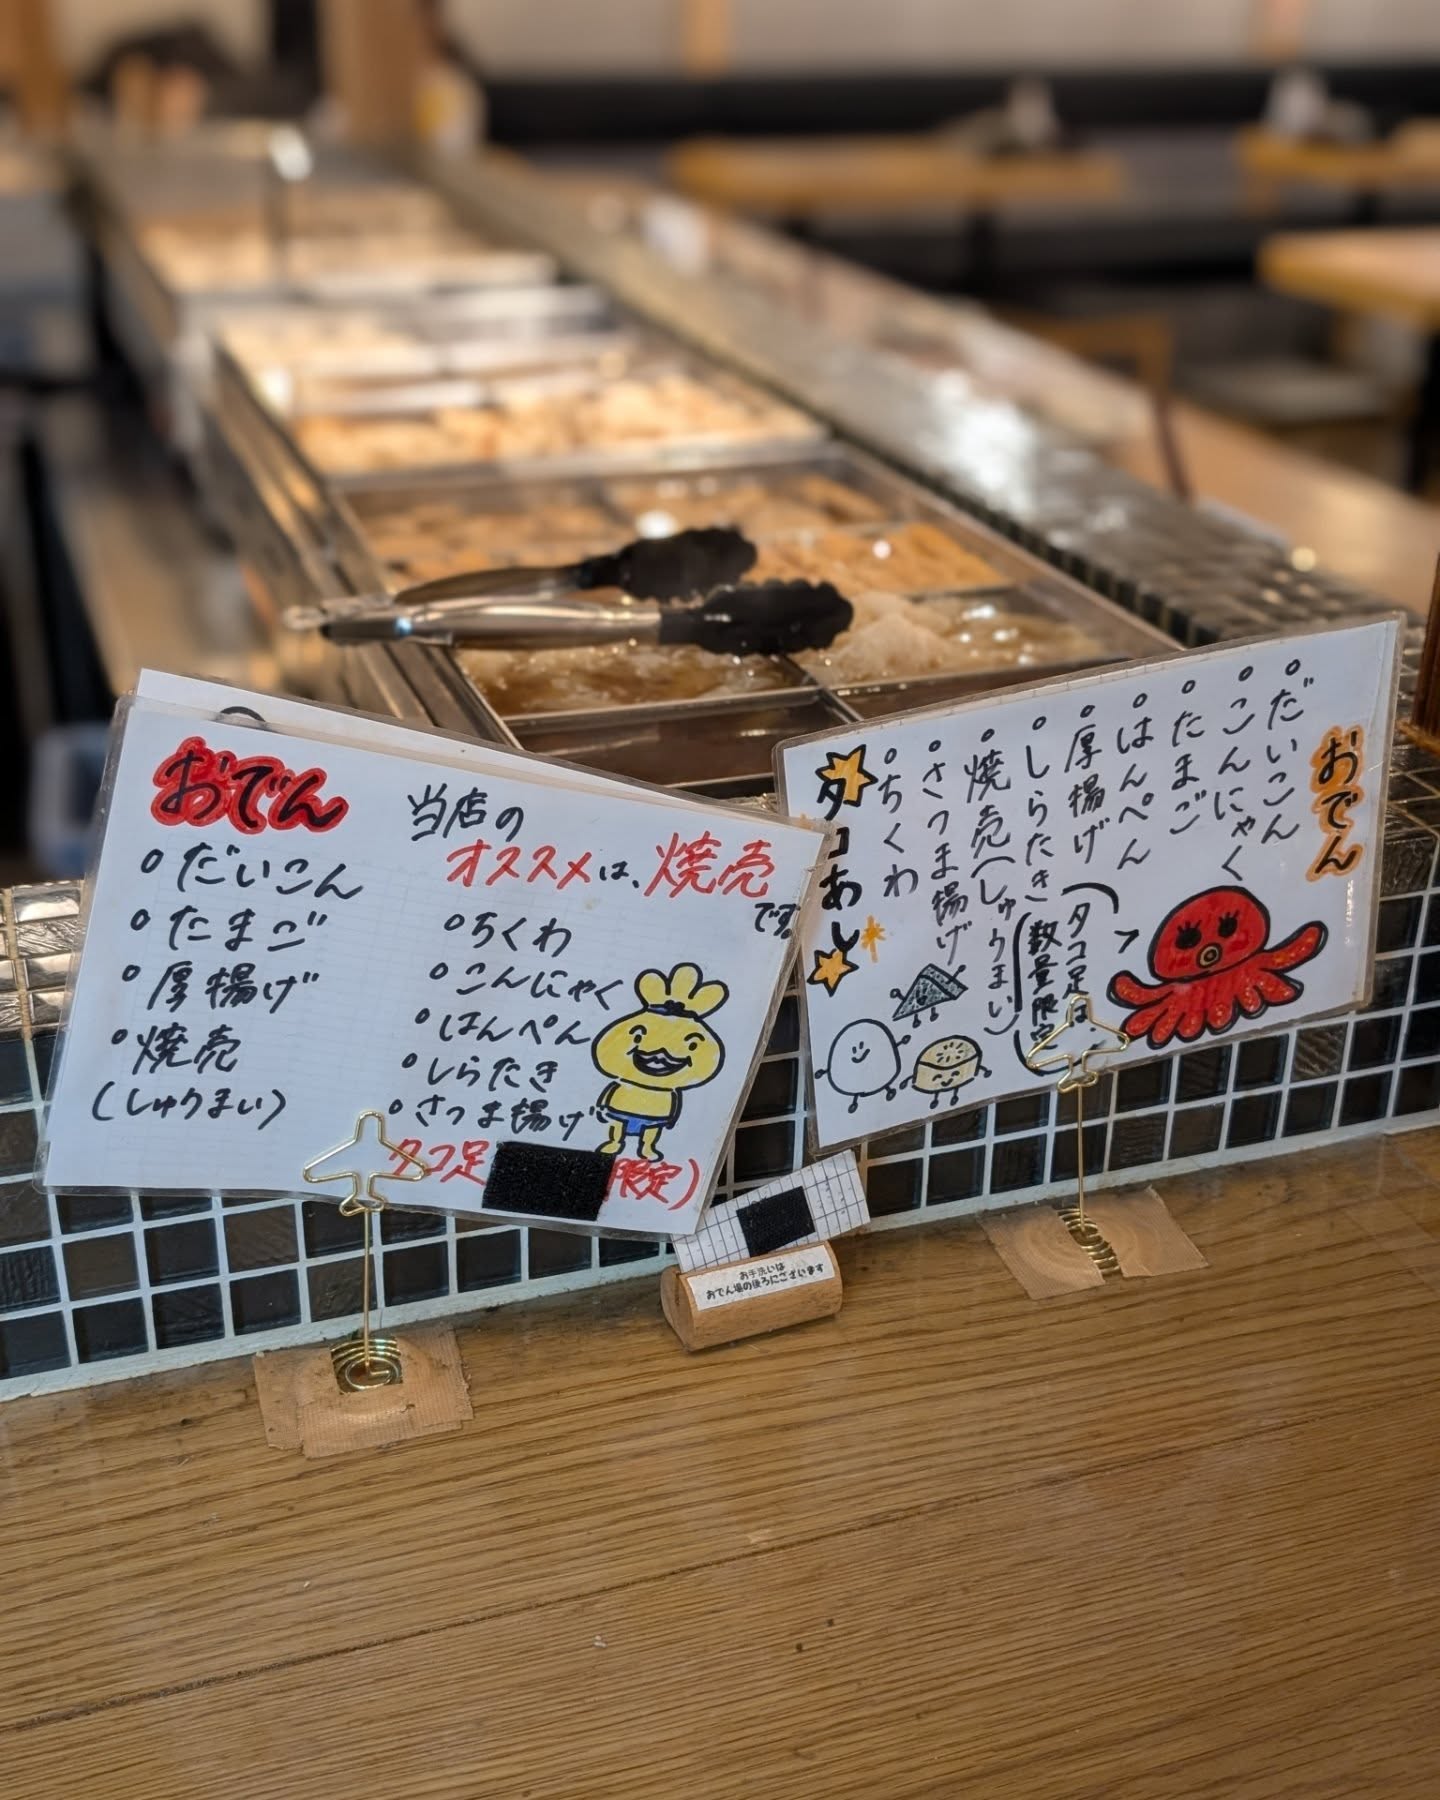 おでん
当店の
オススメは、焼売
です。
○だいこん
○たまご
○厚揚げ
○焼売
(しゅうまい)
○ちくわ
○こんにゃく
○はんぺん
○しらたき
○さつま揚げ
タコ足
限定)
おでん
○だいこん
○こんにゃく
○たまご
○はんぺん
○厚揚げ
○しらたき
○焼売(しゅうまい)
○さつま揚げ
○ちくわ
タコあし
タコ足は、
(数量限定
お手洗いは
おでん場の後ろにございます